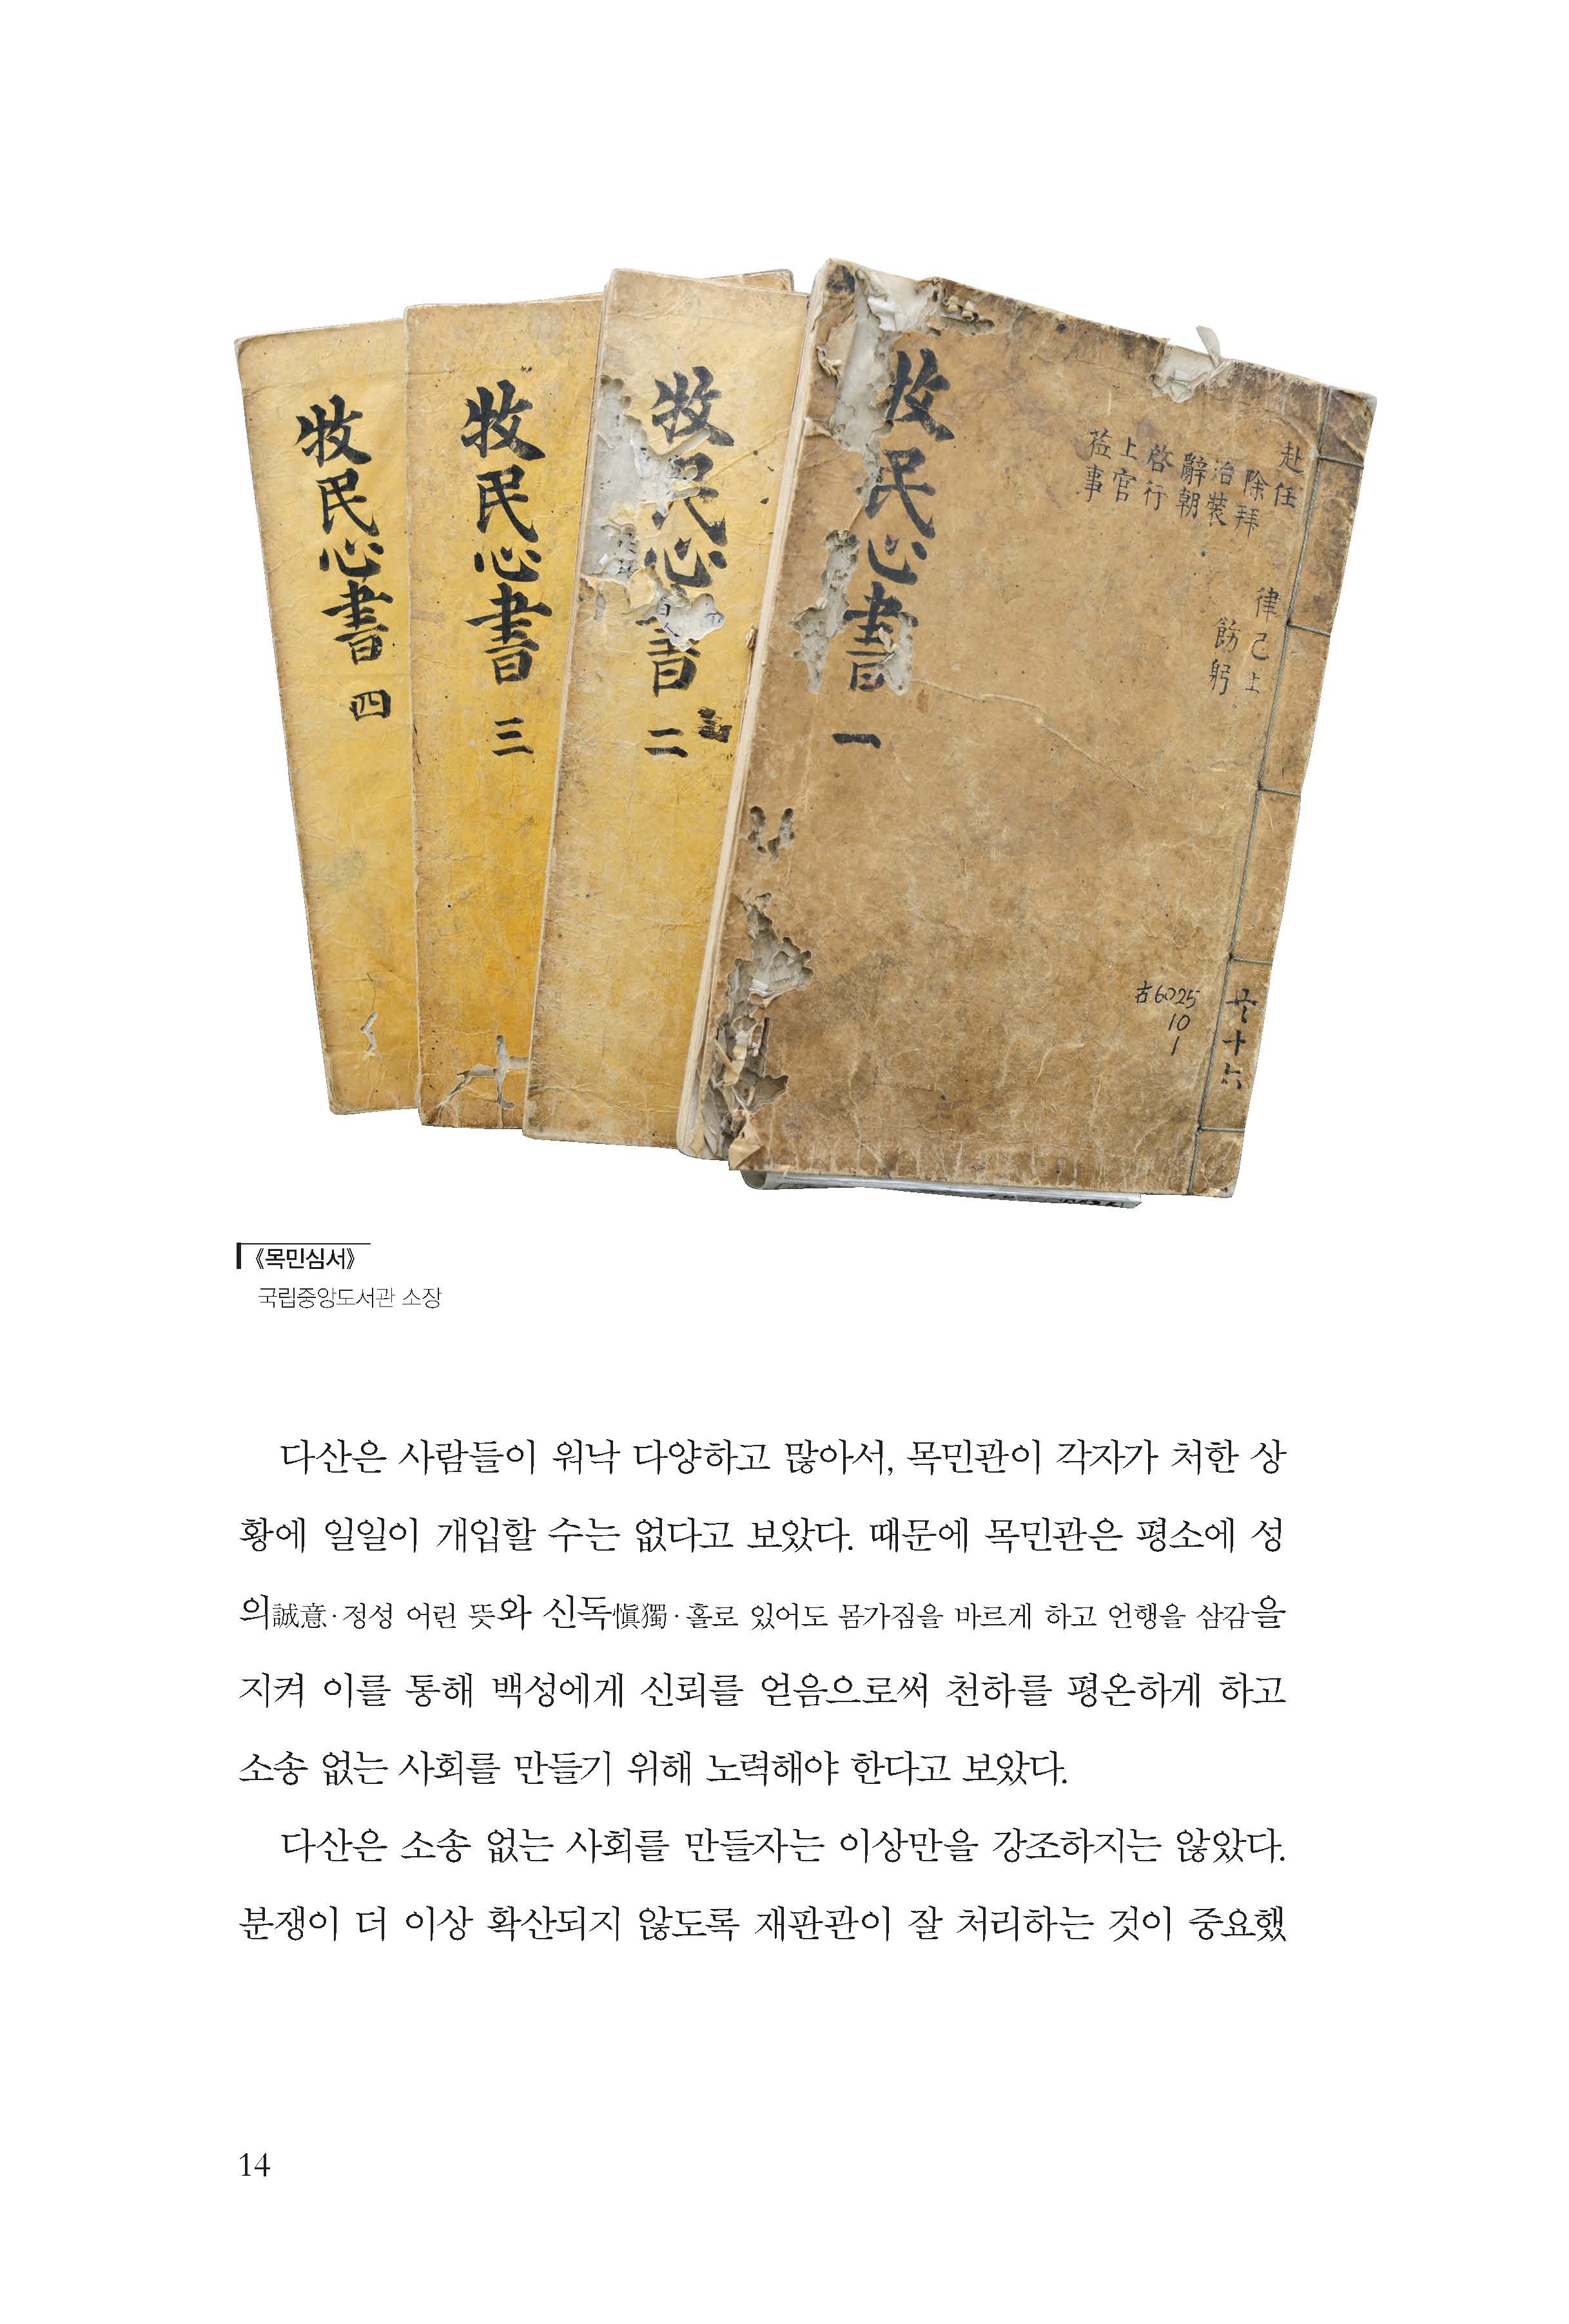 牧民心書 四
牧民心書 三
牧民心書 二
牧民心書 一
赴任
除拜
治裝
辭朝
啓行
上官
莅事
律己上
飭躬
古6025
10
1
共十六
《목민심서》
국립중앙도서관 소장
다산은 사람들이 워낙 다양하고 많아서, 목민관이 각자가 처한 상
황에 일일이 개입할 수는 없다고 보았다. 때문에 목민관은 평소에 성
의誠意·정성 어린 뜻와 신독愼獨·홀로 있어도 몸가짐을 바르게 하고 언행을 삼감을
지켜 이를 통해 백성에게 신뢰를 얻음으로써 천하를 평온하게 하고
소송 없는 사회를 만들기 위해 노력해야 한다고 보았다.
다산은 소송 없는 사회를 만들자는 이상만을 강조하지는 않았다.
분쟁이 더 이상 확산되지 않도록 재판관이 잘 처리하는 것이 중요했
14